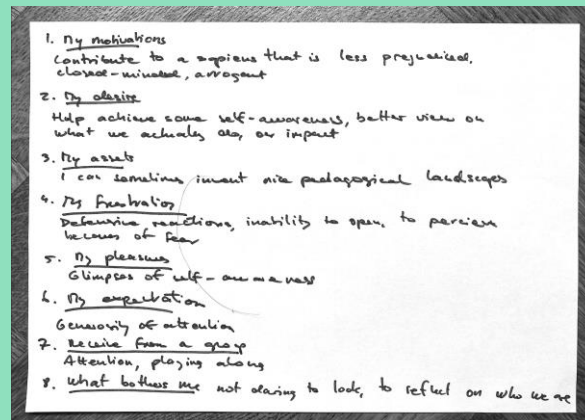 1. My motivations
Contribute to a sapiens that is less prejudiced,
closed-minded, arrogant
2. My desire
Help achieve some self-awareness, better view on
what we actually do, our impact
3. My assets
I can sometimes invent nice pedagogical landscapes
4. My frustration
Defensive reactions, inability to open, to perceive
because of fear
5. My pleasures
Glimpses of self-awareness
6. My expectation
Generosity of attention
7. Receive from a group
Attention, playing along
8. What bothers me not daring to look, to reflect on who we are